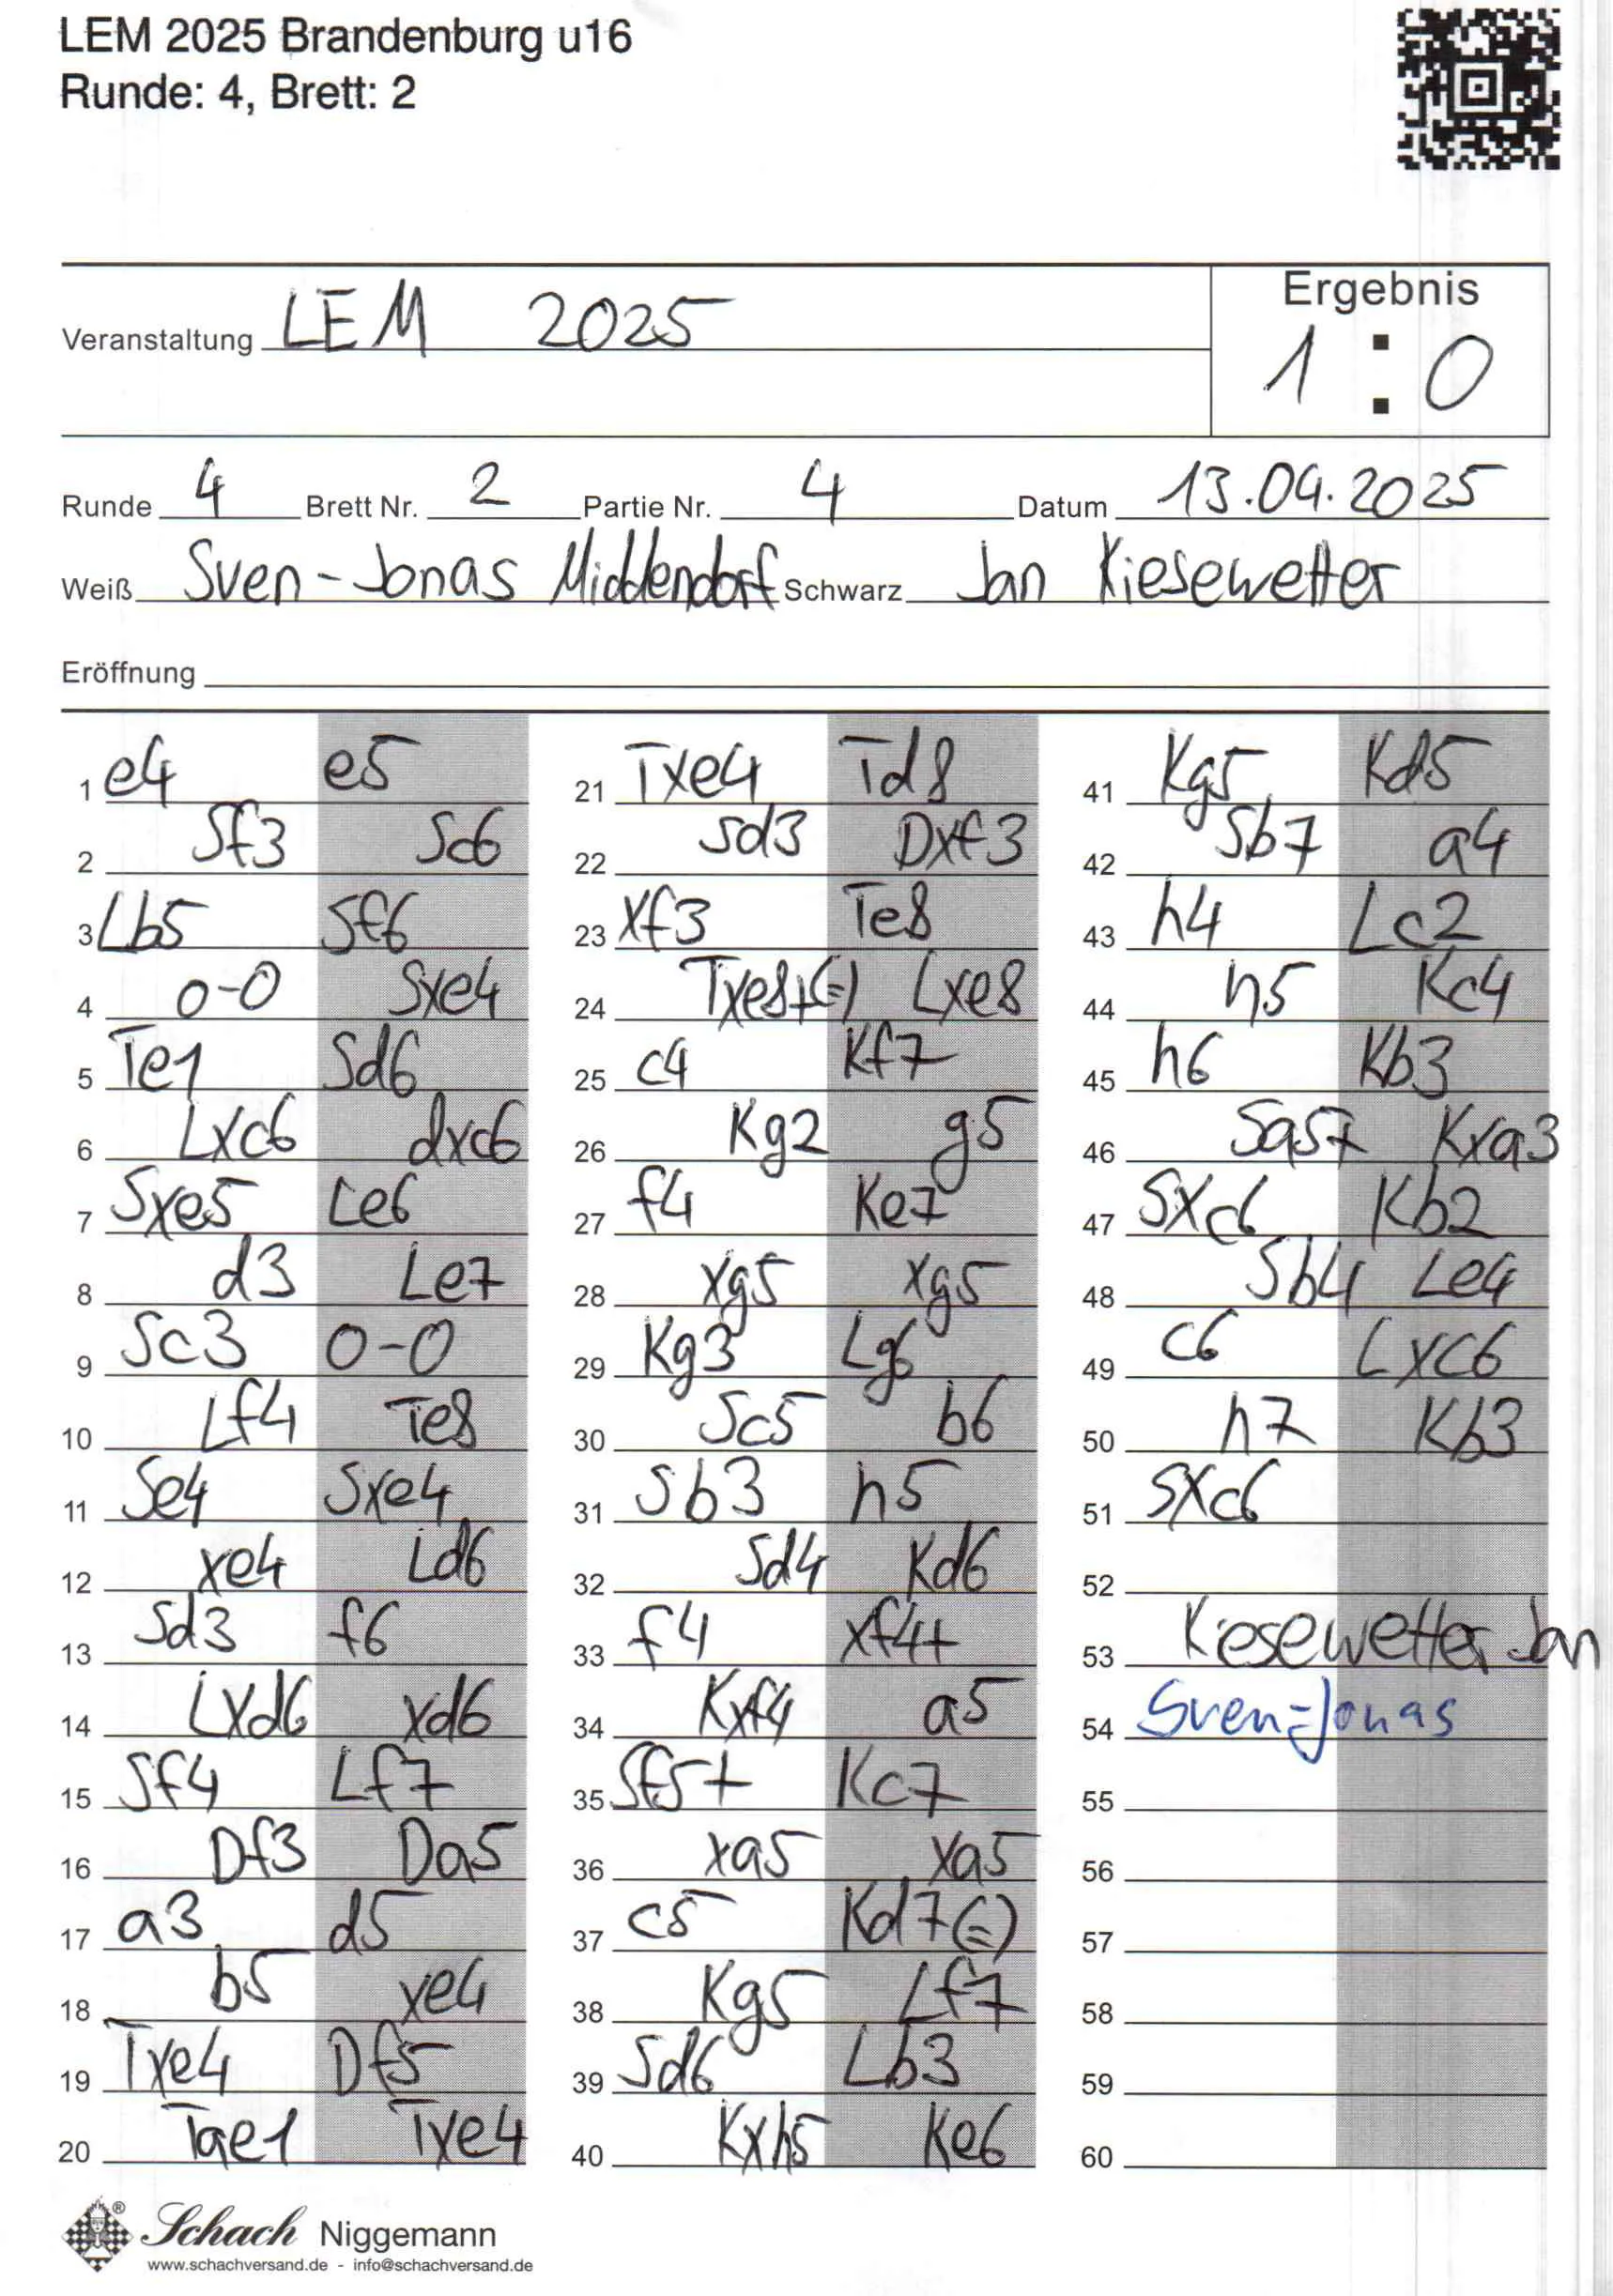 LEM 2025 Brandenburg u16
Runde: 4, Brett: 2
Ergebnis
Veranstaltung LEM 2025
1 : 0
Runde 4 Brett Nr. 2 Partie Nr. 4 Datum 13.04.2025
Weiß Sven-Jonas Middendorf Schwarz Jan Kiesewetter
Eröffnung
1 e4 e5
2 Sf3 Sc6
3 Lb5 Sf6
4 0-0 Sxe4
5 Te1 Sd6
6 Lxc6 dxc6
7 Sxe5 Le6
8 d3 Le7
9 Sc3 0-0
10 Lf4 Te8
11 Se4 Sxe4
12 xe4 Ld6
13 Sd3 f6
14 Lxd6 xd6
15 Sf4 Lf7
16 Df3 Da5
17 a3 d5
18 b5 xe4
19 Txe4 Df5
20 Tae1 Txe4
21 Txe4 Td8
22 Sd3 Dxf3
23 xf3 Te8
24 Txe8+(=) Lxe8
25 c4 Kf7
26 Kg2 g5
27 f4 Ke7
28 xg5 xg5
29 Kg3 Lg6
30 Sc5 b6
31 Sb3 h5
32 Sd4 Kd6
33 f4 xf4+
34 Kxf4 a5
35 Sf5+ Kc7
36 xa5 xa5
37 c5 Kd7(=)
38 Kg5 Lf7
39 Sd6 Lb3
40 Kxh5 Ke6
41 Kg5 Kd5
42 Sb7 a4
43 h4 Lc2
44 h5 Kc4
45 h6 Kb3
46 Sa5+ Kxa3
47 Sxc6 Kb2
48 Sb4 Le4
49 c6 Lxc6
50 h7 Kb3
51 Sxc6
52
53 Kiesewetter Jan
54 Sven-Jonas
55
56
57
58
59
60
® Schach Niggemann
www.schachversand.de - info@schachversand.de